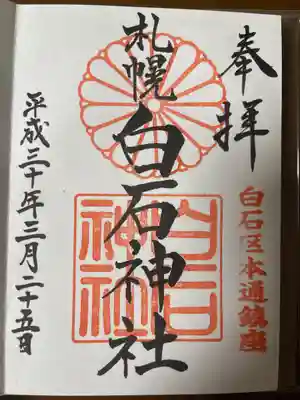 奉拝
白石区本通鎮座
札幌
白石神社
白石神社
平成三十年三月二十五日